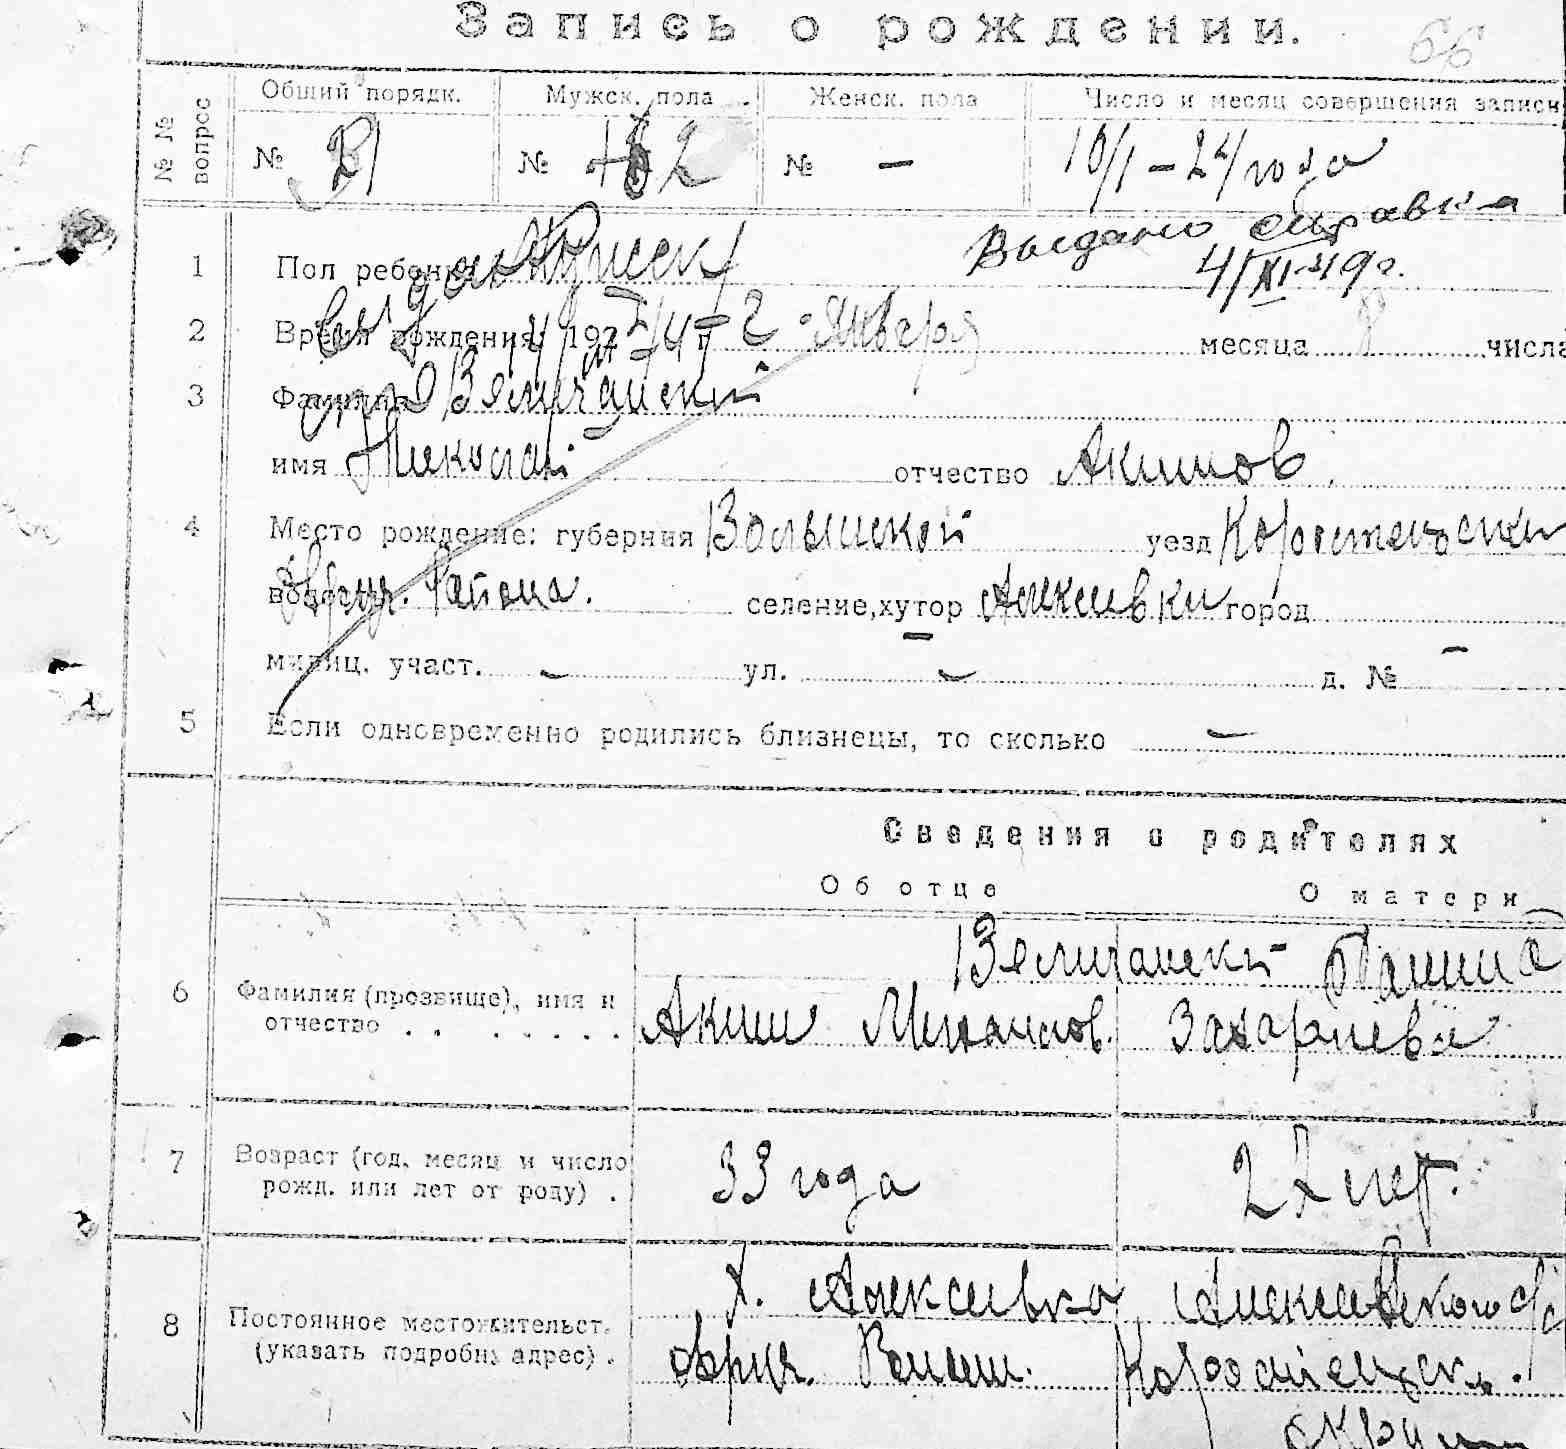 Запись о рождении.
66
№ № вопрос
Общий порядк. Мужск. пола Женск. пола Число и месяц совершения записи
№ 21 № 2 № — 10/1 – 24 года
Выдано справка
4/XI-49 г.
1 Пол ребенка Мужск
2 Время рождения: 192 4 г. января месяца 8 числа
3 Фамилия Величанский
имя Николай отчество Акимов
4 Место рождение: губерния Волынской уезд Коростенский
волость Овруч. Района. селение, хутор Алексеевки город
милиц. участ. — ул. — д. № —
5 Если одновременно родились близнецы, то сколько —
Сведения о родителях
Об отце О матери
6 Фамилия (прозвище), имя и отчество
Величански
Аким Михайлов. Захариева
7 Возраст (год, месяц и число рожд. или лет от роду).
33 года 27 лет.
8 Постоянное местожительст. (указать подробн. адрес).
х. Алексеевка Алексеевского с/с
Овруч. Волын. Коростенск.